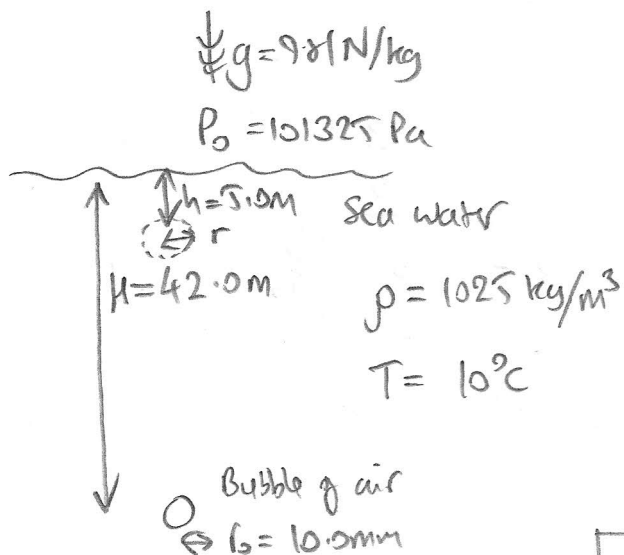 g=9.81N/kg
P₀ =101325 Pa
h=5.0m
Sea water
r
H=42.0m
ρ = 1025 kg/m³
T= 10°C
Bubble of air
r₀= 10.0mm